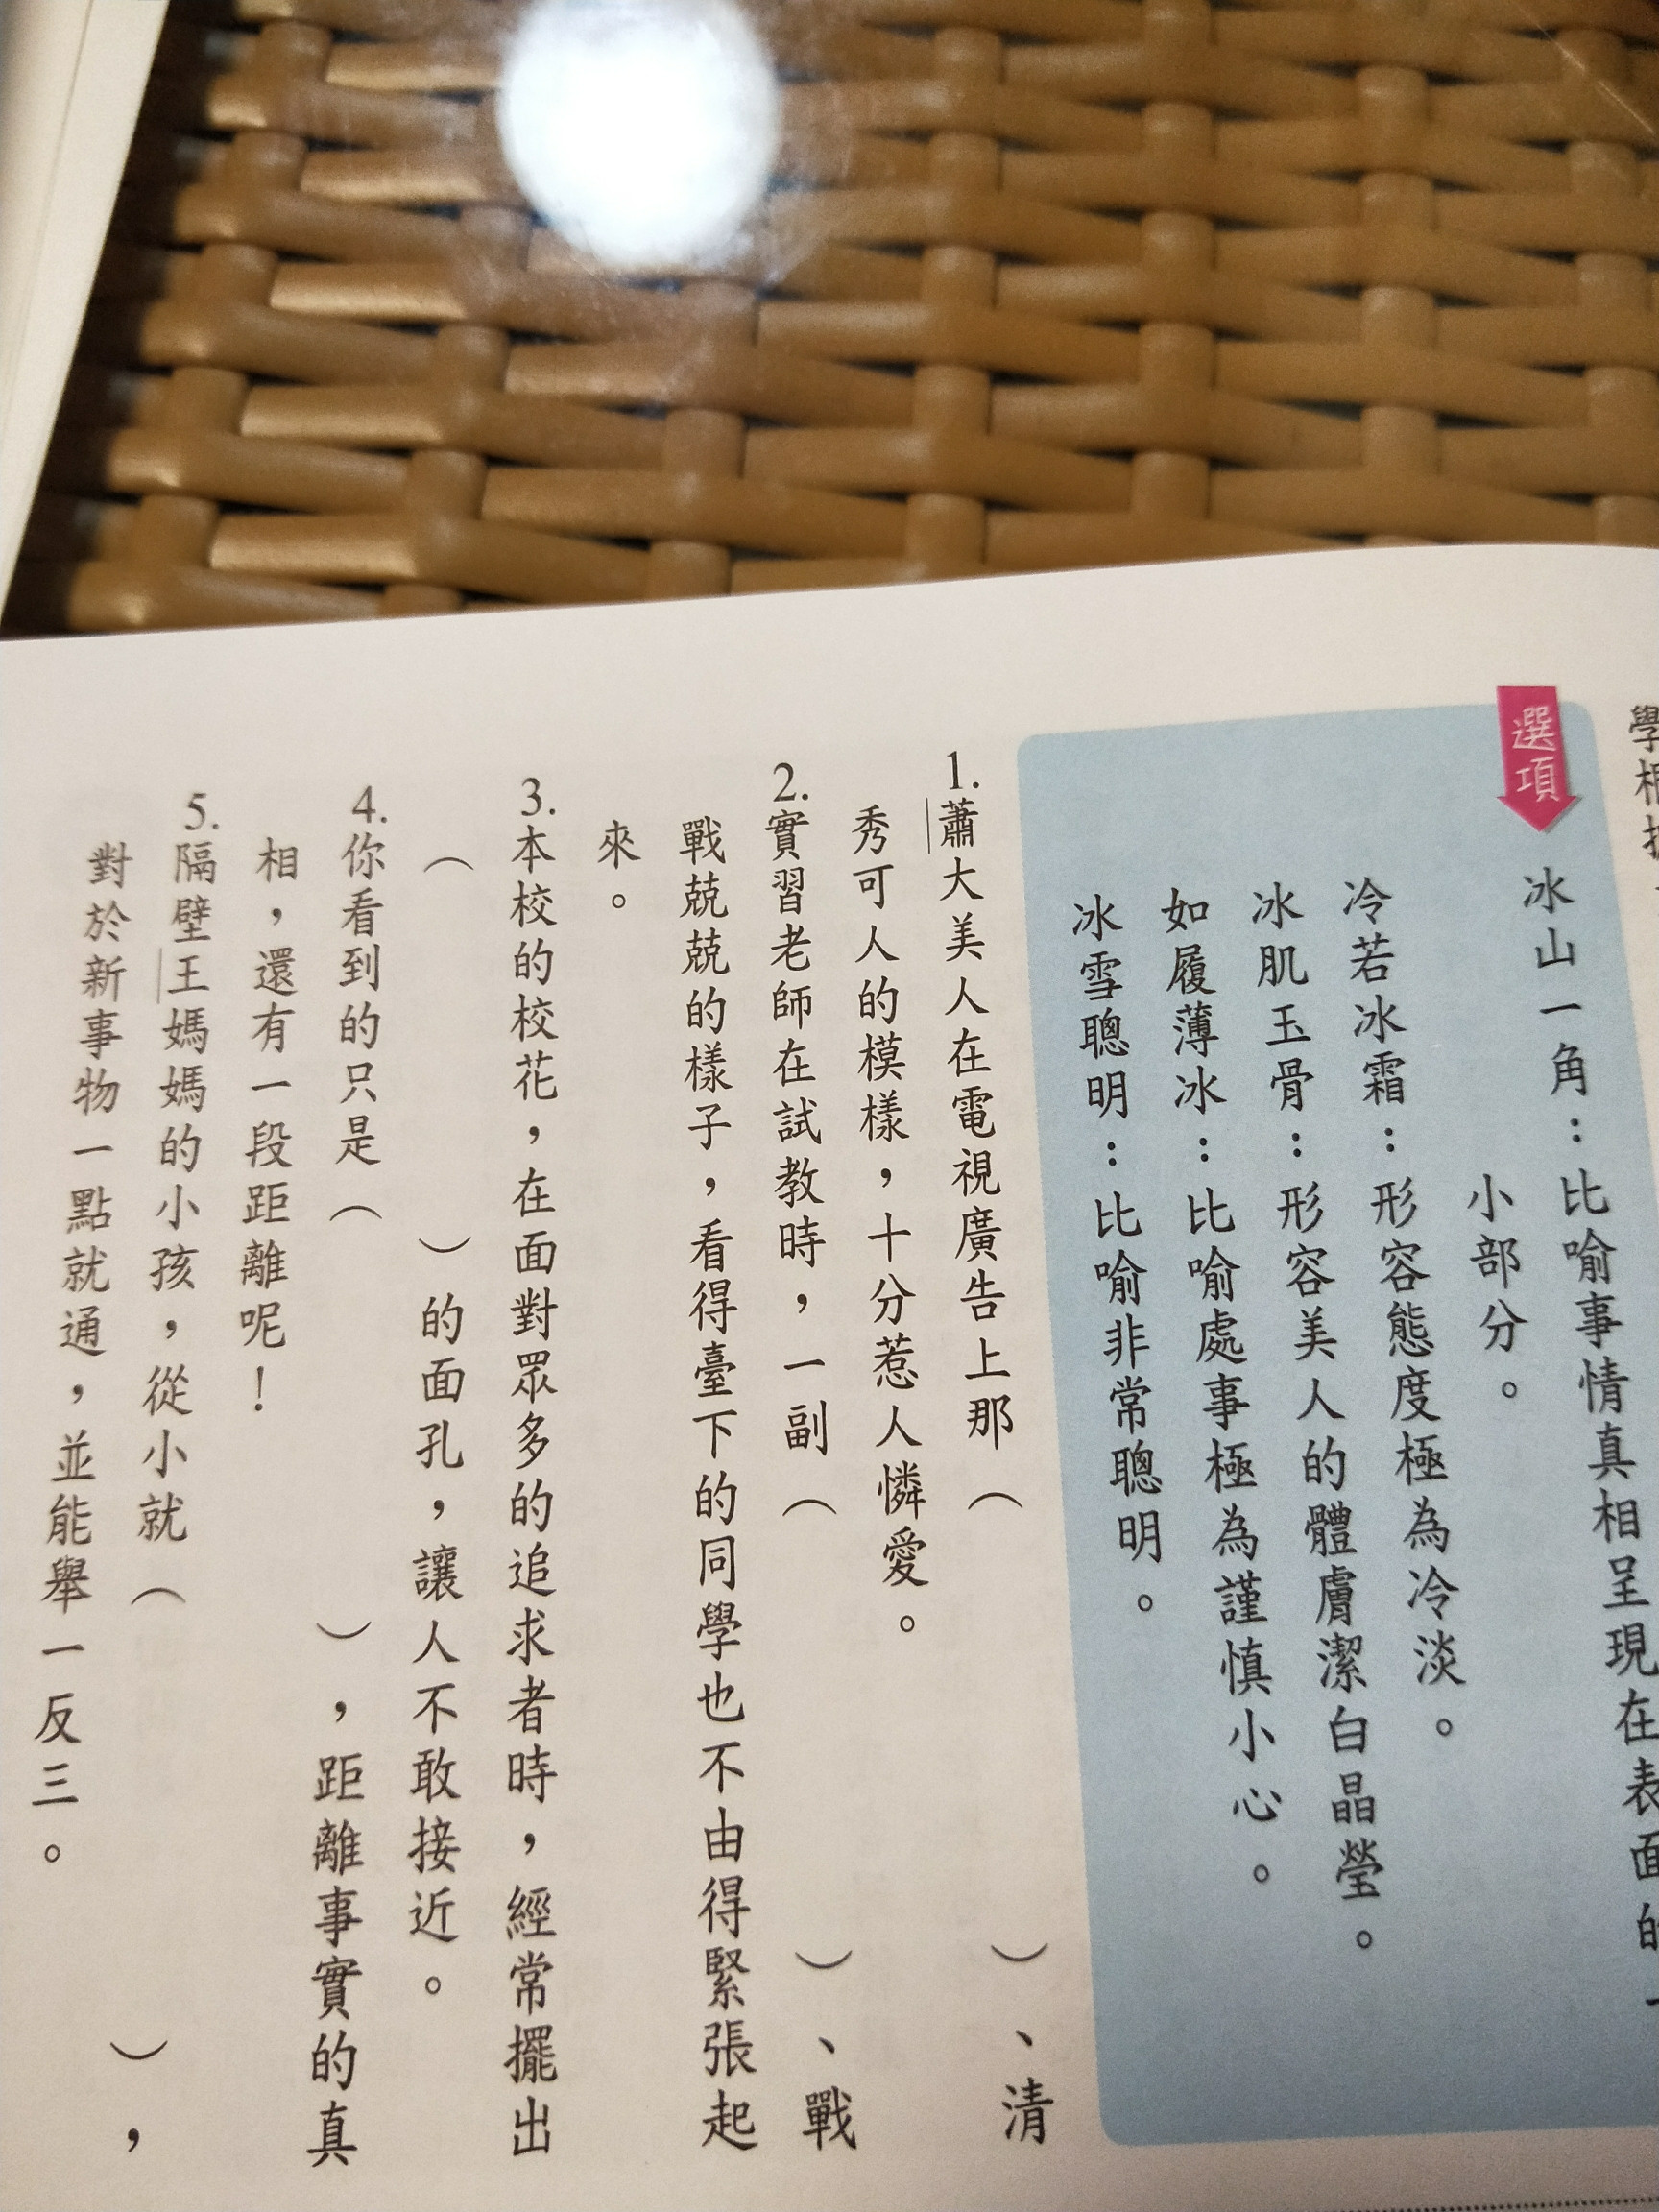 選項
冰山一角：比喻事情真相呈現在表面的一
小部分。
冷若冰霜：形容態度極為冷淡。
冰肌玉骨：形容美人的體膚潔白晶瑩。
如履薄冰：比喻處事極為謹慎小心。
冰雪聰明：比喻非常聰明。
1.蕭大美人在電視廣告上那（　　　　）、清
秀可人的模樣，十分惹人憐愛。
2.實習老師在試教時，一副（　　　　）、戰
戰兢兢的樣子，看得臺下的同學也不由得緊張起
來。
3.本校的校花，在面對眾多的追求者時，經常擺出
（　　　　）的面孔，讓人不敢接近。
4.你看到的只是（　　　　），距離事實的真
相，還有一段距離呢！
5.隔壁王媽媽的小孩，從小就（　　　　），
對於新事物一點就通，並能舉一反三。